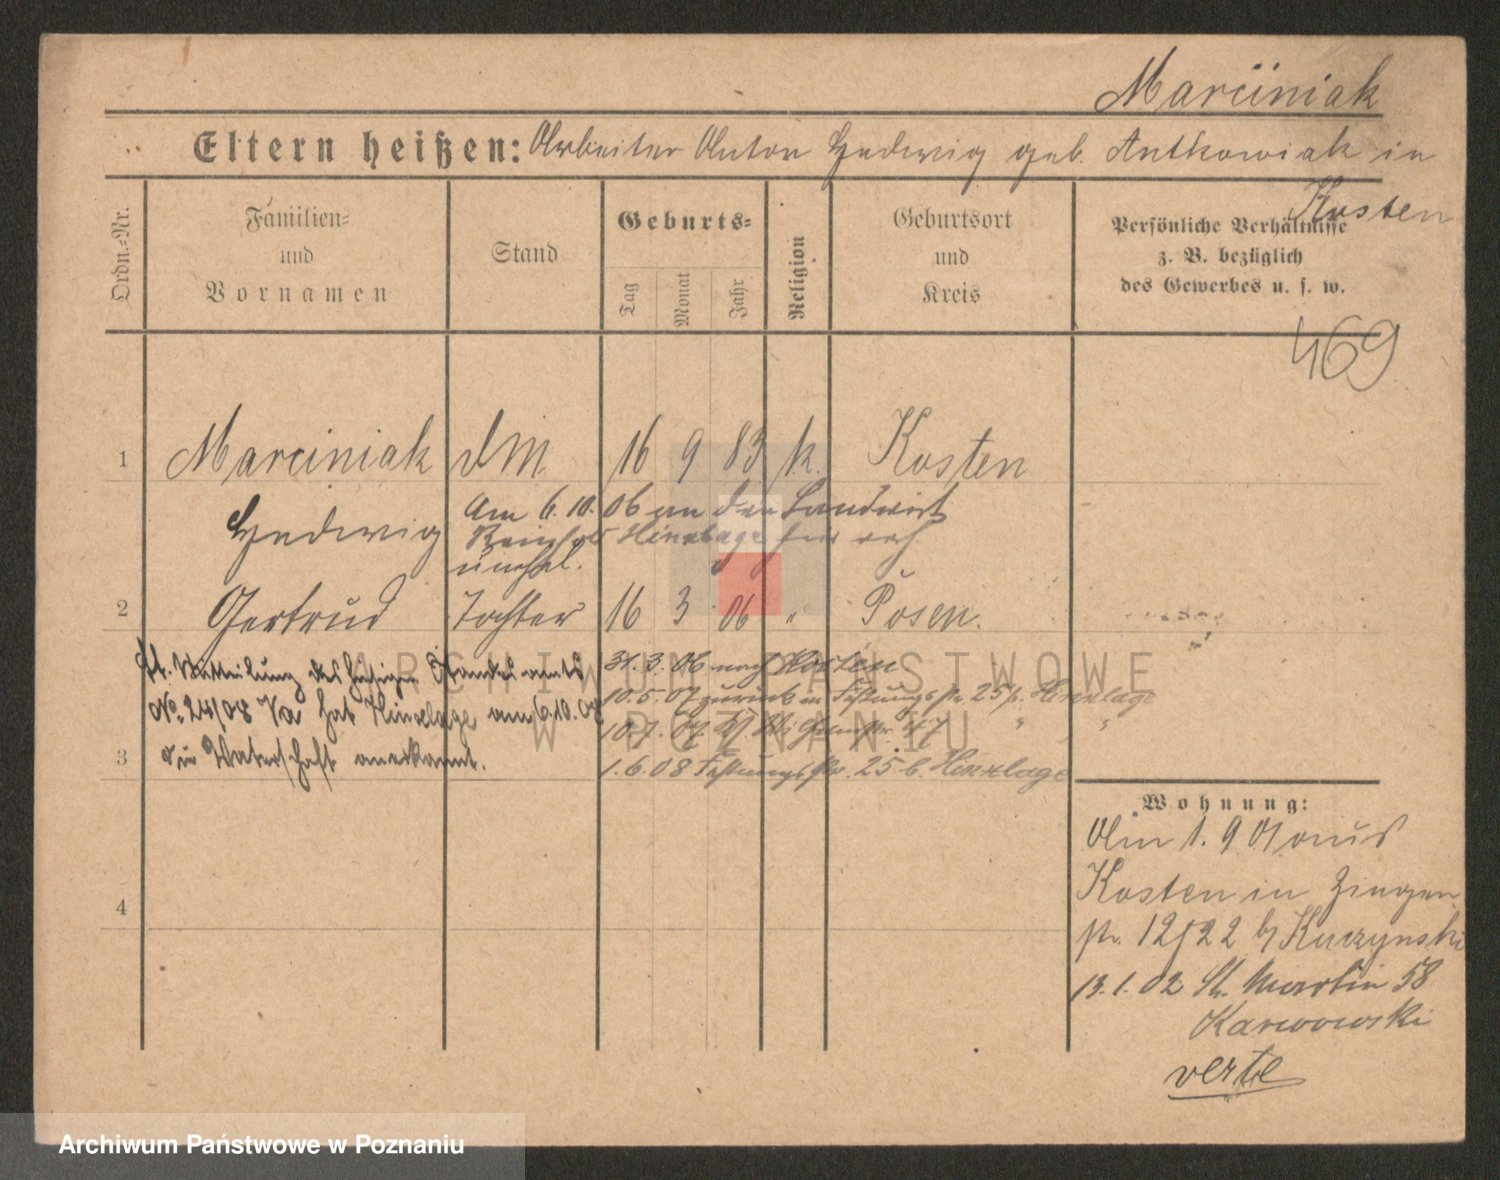 Marciniak
Eltern heißen: Arbeiter Anton Hedwig geb. Antkowiak in
Kosten
Ordn.-Nr.
Familien-
und
Vornamen
Stand
Geburts-
Tag
Monat
Jahr
Religion
Geburtsort
und
Kreis
Persönliche Verhältnisse
z. B. bezüglich
des Gewerbes u. s. w.
469
1 Marciniak DM 16 9 83 k. Kosten
Hedwig
Am 6.10.06 an den Landwirt
Hinxlage
unehel.
2 Gertrud Tochter 16 3 06 " Posen.
lt. Mitteilung des hiesigen Standesamts
No. 24/07 Va hat Hinxlage am 6.10.06
3 die Vaterschaft anerkannt.
31.3.06 nach Kosten
10.5.07 zurück in Festungsstr. 25 b. Hinxlage
10.7.07 " "
1.6.08 Festungsstr. 25 b. Hinxlage
4
Wohnung:
Am 1.9 01 aus
Kosten in Zingen
str. 12/22 b/ Kuczynski
13.1.02 St. Martin 58
Karwowski
verte
ARCHIWUM PAŃSTWOWE
W POZNANIU
Archiwum Państwowe w Poznaniu